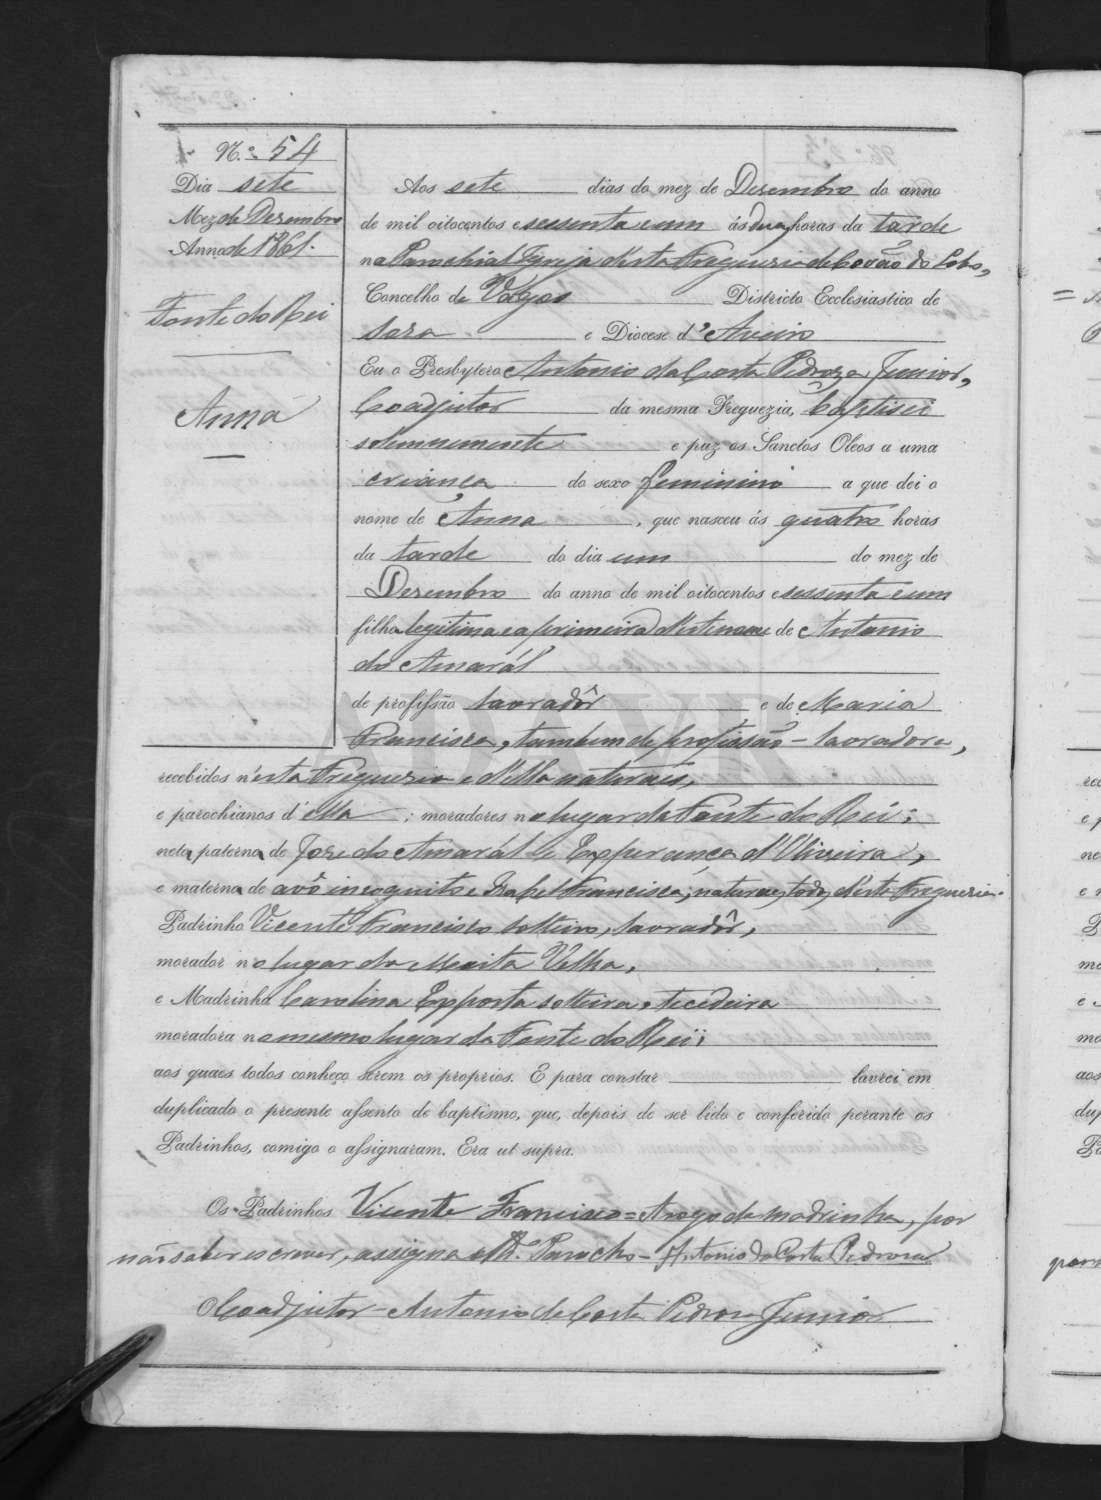 N.º 54
Dia sete
Mez de Dezembro
Anno de 1861.
Fonte do Rei
Anna
Aos sete dias do mez de Dezembro do anno
de mil oitocentos e sessenta e um ás duas horas da tarde
na Parochial Igreja d'esta Freguezia de Covão do Lobo,
Concelho de Vagos Districto Ecclesiastico de
Soza e Diocese d'Aveiro
Eu o Presbytero Antonio da Costa Pedroza Junior,
Coadjutor da mesma Freguezia, baptisei
solemnemente e puz os Sanctos Oleos a uma
criança do sexo feminino a que dei o
nome de Anna, que nasceu ás quatro horas
da tarde do dia um do mez de
Dezembro do anno de mil oitocentos e sessenta e um
filha legitima e a primeira d'este nome de Antonio
do Amarál
de profissão lavradôr e de Maria
Francisca, tambem de profissão - lavradora,
recebidos n'esta Freguezia e d'ella naturaes,
e parochianos d'ella; moradores no lugar da Fonte do Rei;
neta paterna de Joze do Amarál e Esperança d'Oliveira,
e materna de avô incognito e Izabel Francisca; naturaes todos d'esta Freguezia.
Padrinho Vicente Francisco solteiro, lavradôr,
morador no lugar da Moita Velha,
e Madrinha Carolina Exposta solteira, tecedeira
moradora no mesmo lugar da Fonte do Rei;
aos quaes todos conheço serem os proprios. E para constar lavrei em
duplicado o presente assento de baptismo, que, depois de ser lido e conferido perante os
Padrinhos, comigo o assignaram. Era ut supra.
Os Padrinhos Vicente Francisco = A rogo da madrinha, por
não saber escrever, assigna o R.do Parocho - Antonio da Costa Pedroza
O Coadjutor - Antonio da Costa Pedroza Junior
ADAVR